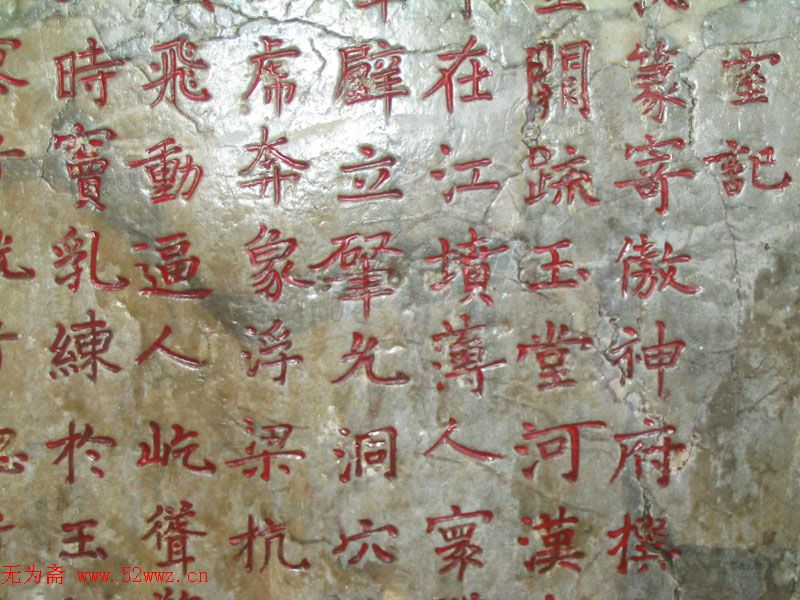 室記
篆寄傲神府撰
關疏玉堂河漢
在江墳薄人寰
壁立肇允洞穴
虎奔象浮梁杭
飛動逼人屹聳
時竇乳練於玉
无为斋 www.52wwz.cn